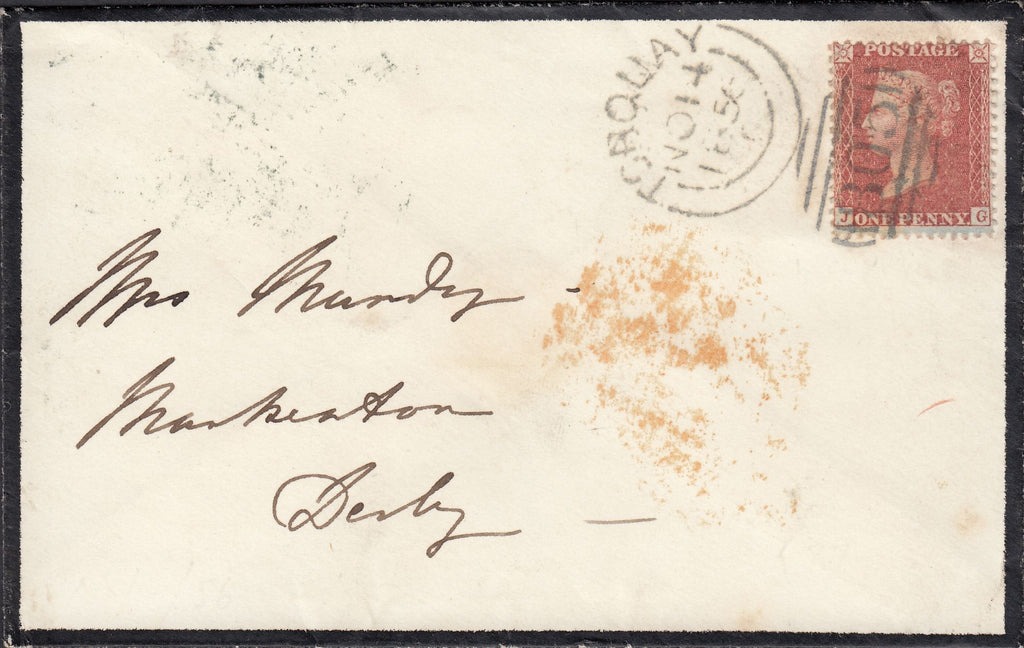 TORQUAY
NO 14
185
POSTAGE
J ONE PENNY. G
Mrs Mundy -
Markeaton
Derby -